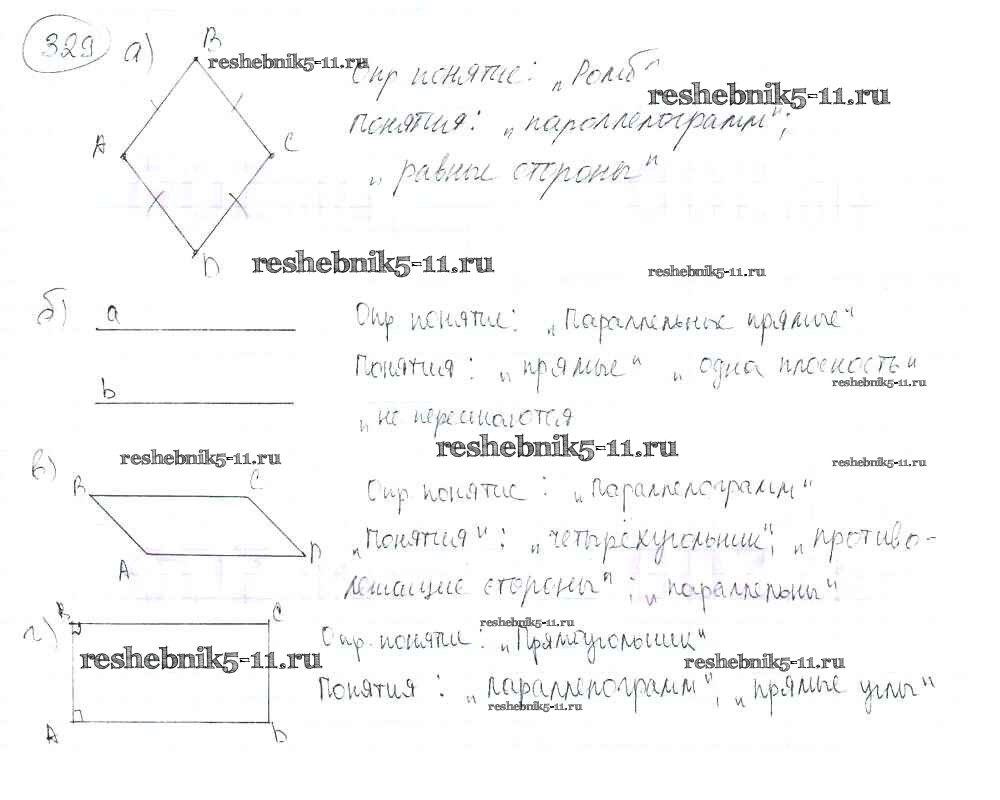 329 а) В reshebnik5-11.ru Опр понятие: „Ромб"
reshebnik5-11.ru
А С Понятия: „пароллелограмм";
„равные стороны"
D reshebnik5-11.ru reshebnik5-11.ru
б) a Опр понятие: „Параллельные прямые"
b Понятия: „прямые" „одна плоскость"
reshebnik5-11.ru
„не
reshebnik5-11.ru
в) reshebnik5-11.ru reshebnik5-11.ru
В С Опр понятие: „Параллелограмм"
А D „Понятия": „четырёхугольник"; „противо-
лежащие стороны"; „параллельны"
reshebnik5-11.ru
г) В С Опр. понятие: „Прямоугольник"
reshebnik5-11.ru reshebnik5-11.ru
Понятия: „параллелограмм", „прямые углы"
reshebnik5-11.ru
А D